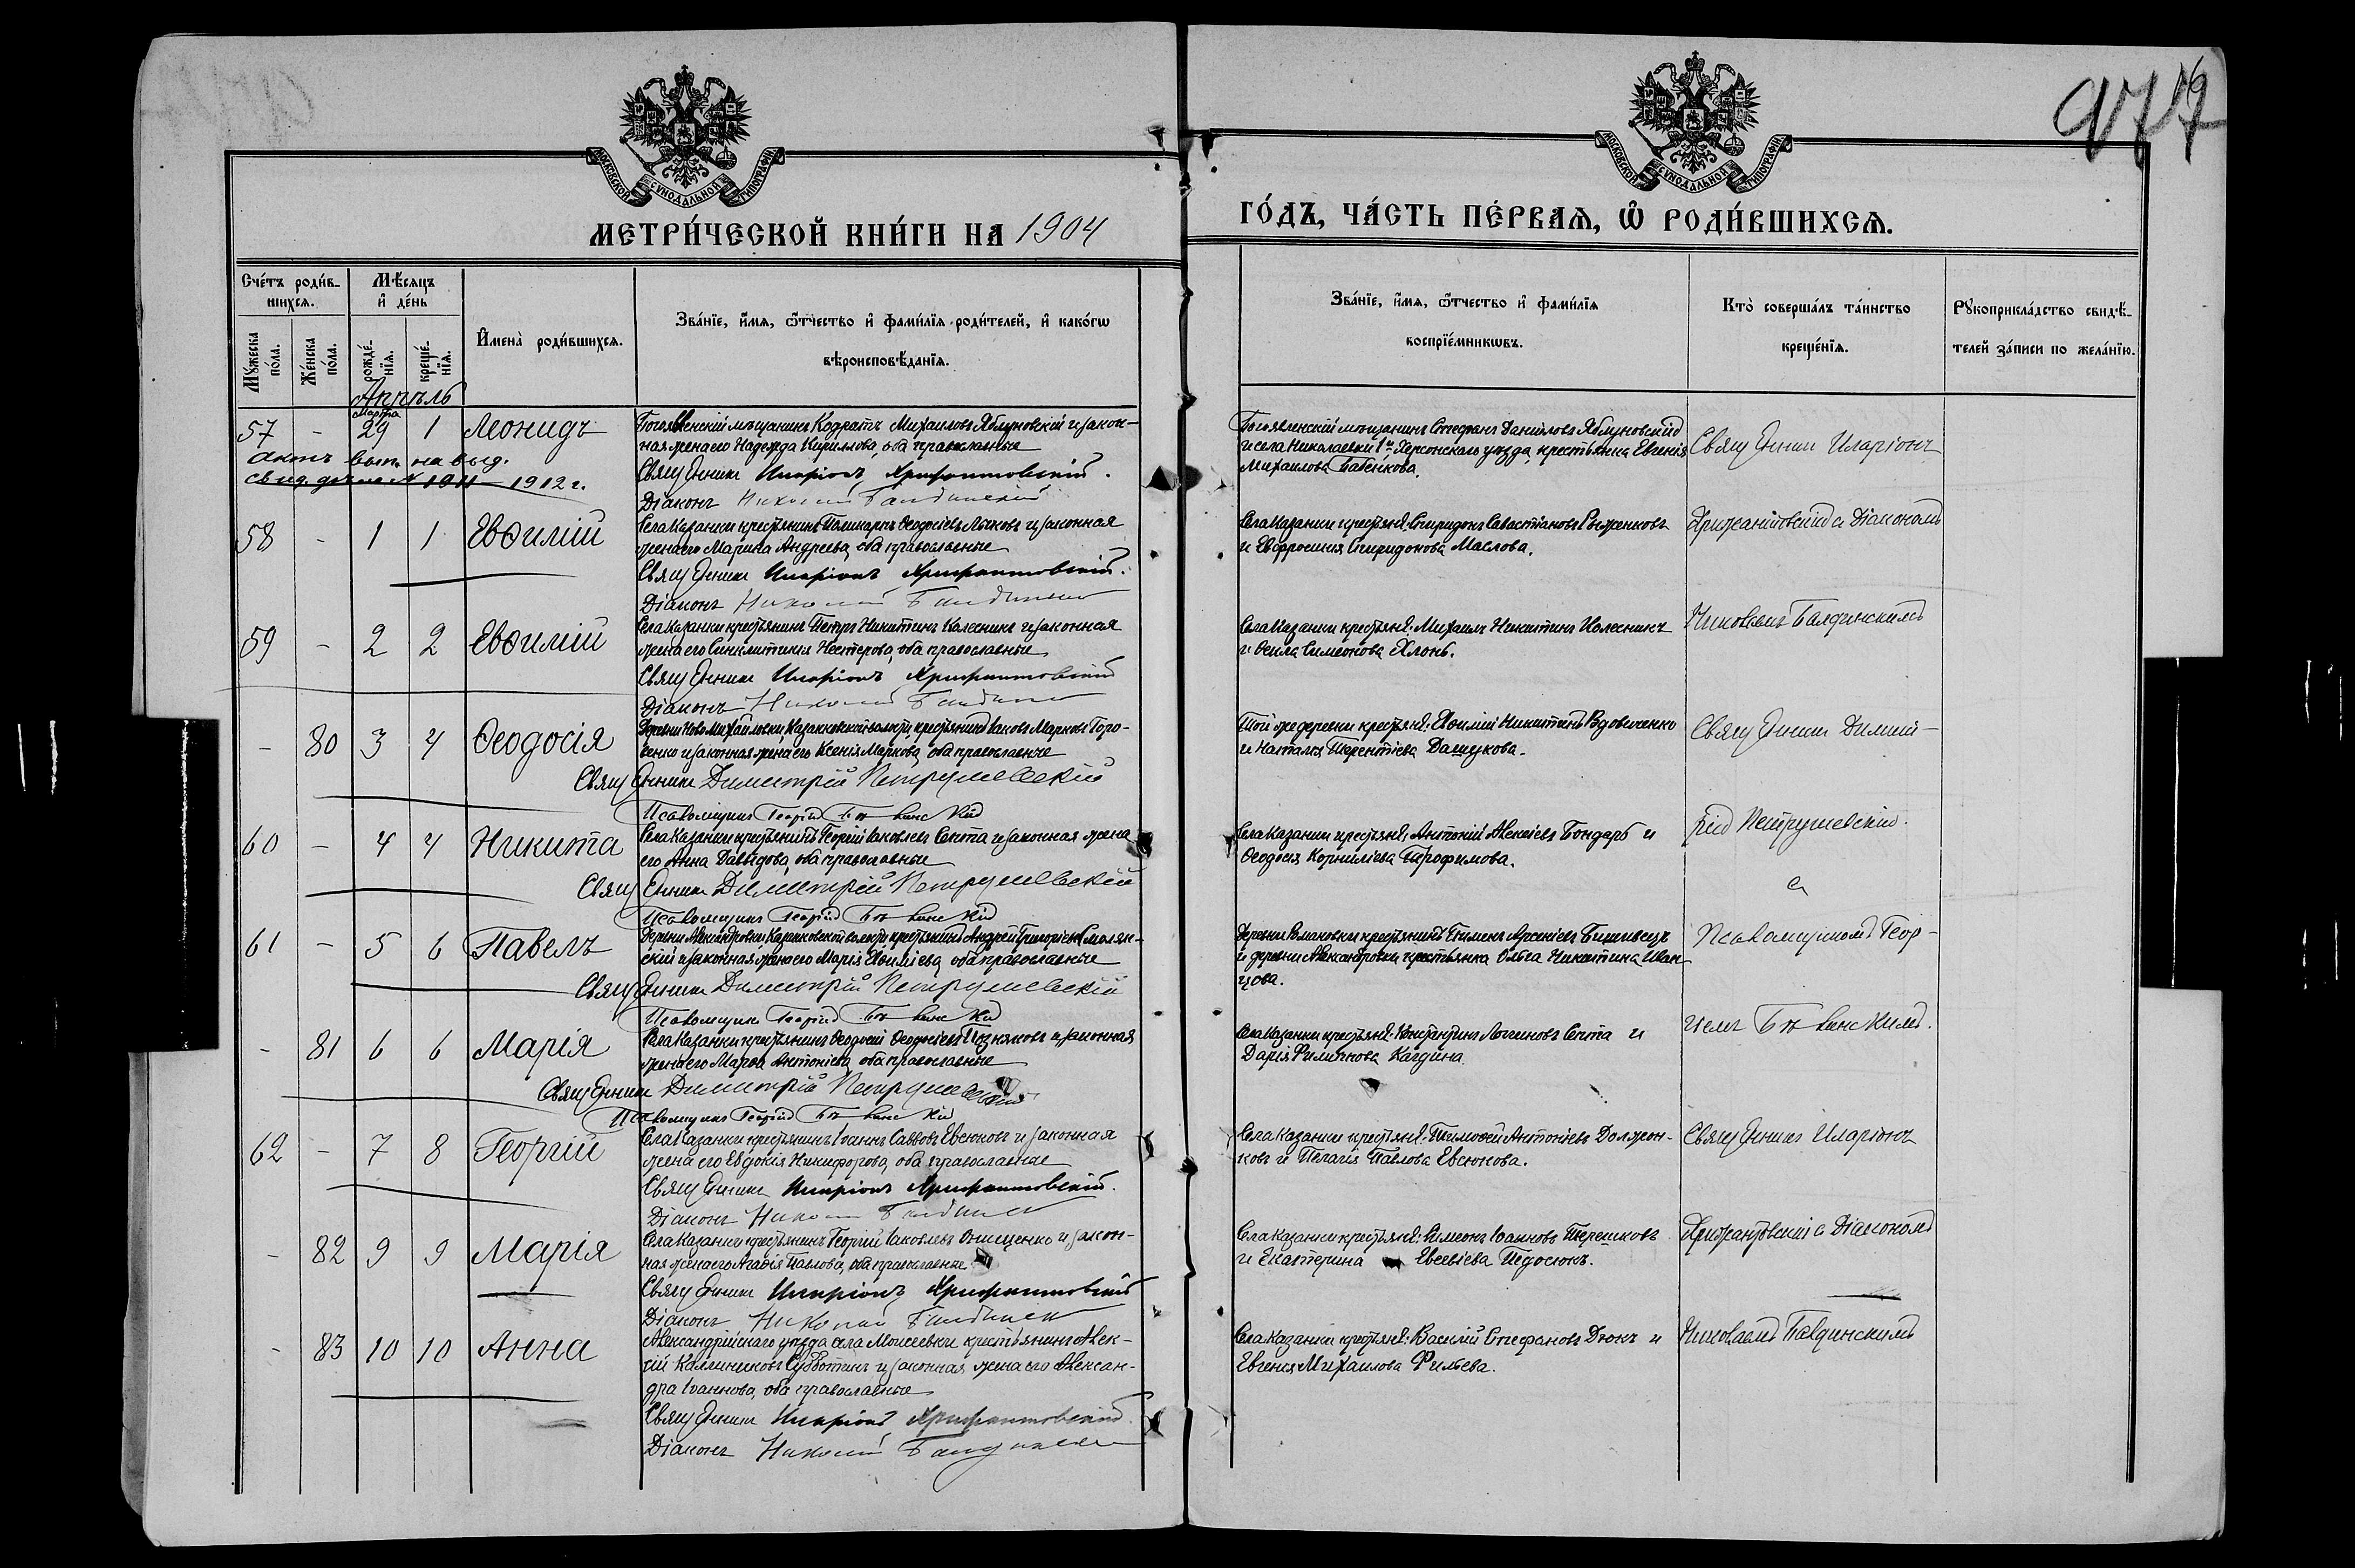 977
МОСКОВСКОЙ СѴНОДАЛЬНОЙ ТИПОГРАФІИ
МОСКОВСКОЙ СѴНОДАЛЬНОЙ ТИПОГРАФІИ
МЕТРИ́ЧЕСКОЙ КНИ́ГИ НА 1904
ГО́ДЪ, ЧА́СТЬ ПЕ́РВАѦ, Ѡ҆ РОДИ́ВШИХСѦ.
Сче́тъ роди́в-
шихся.
Мѣ́сяцъ
и҆ де́нь
Му́жеска по́ла.
Же́нска по́ла.
рожде́-нїя.
креще́-нїя.
И҆мена̀ роди́вшихся.
Зва́нїе, и҆́мя, ѻ҆́тчество и҆ фами́лїя роди́телей, и҆ како́гѡ
вѣроисповѣ́данїя.
Зва́нїе, и҆́мя, ѻ҆́тчество и҆ фами́лїя
воспрїе́мникѡвъ.
Кто̀ соверша́лъ та́инство
креще́нїя.
Рукоприкла́дство свидѣ́-
телей за́писи по жела́нїю.
Апрѣль
Марта
57 - 29 1 Леонидъ
Богоявленскій мѣщанинъ Кодратъ Михаиловъ Яблуновскій и закон-
ная жена его Надежда Кириллова, оба православные
Священникъ Иларіонъ
Діаконъ Николай
актъ вып. на выд.
1912 г.
Богоявленскій мѣщанинъ Стефанъ Даниловъ Яблуновскій
и села Николаевки 1й Херсонскаго уѣзда, крестьянка Евгенія
Михаилова Бабенкова.
Священник Иларіонъ
58 - 1 1 Евѳимій
Села Казанки крестьянинъ Поликарпъ Ѳеодосіевъ Лысковъ и законная
жена его Марина Андреева, оба православные
Священникъ Иларіонъ
Діаконъ Николай
Села Казанки крестьян: Спиридонъ Савастіановъ Рыженковъ
и Евфросинія Спиридонова Маслова.
съ Діакономъ
59 - 2 2 Евѳимій
Села Казанки крестьянинъ Петръ Никитинъ Колесникъ и законная
жена его Синклитикія Нестерова, оба православные
Священникъ Иларіонъ
Діаконъ Николай
Села Казанки крестьян: Михаилъ Никитинъ Колесникъ
и Ѳекла Симеонова Хлонь.
Николаемъ
- 80 3 4 Ѳеодосія
Деревни Ново Михайловки, Казанковской волости, крестьянинъ Іаковъ Марковъ Горо-
бенко и законная жена его Ксенія Маркова, оба православные
Священникъ Димитрій Петрушевскій
Псаломщикъ Георгій
Той же деревни крестьян: Евѳимій Никитинъ Вдовиченко
и Наталія Терентіева Дашукова.
Священник Димит-
60 - 4 4 Никита
Села Казанки крестьянинъ Георгій Іаковлевъ Септа и законная жена
его Анна Давидова, оба православные
Священникъ Димитрій Петрушевскій
Псаломщикъ Георгій
Села Казанки крестьян: Антоній Алексіевъ Бондарь и
Ѳеодосія Корниліева Трофимова.
рій Петрушевскій.
съ
61 - 5 6 Павелъ
Деревни Александровки, Казанковской волости, крестьянинъ Андрей Григоріевъ Смолян-
скій и законная жена его Марія Евѳиміева, оба православные
Священникъ Димитрій Петрушевскій
Псаломщикъ Георгій
Деревни Романовки крестьянинъ Пименъ Арсеніевъ
и деревни Александровки крестьянка Ольга Никитина Иван-
цова.
Псаломщикомъ Геор-
- 81 6 6 Марія
Села Казанки крестьянинъ Ѳеодосій Ѳеодосіевъ Позняковъ и законная
жена его Марѳа Антоніева, оба православные
Священникъ Димитрій Петрушевскій
Псаломщикъ Георгій
Села Казанки крестьян: Константинъ Логгиновъ Септа и
Дарія Филиппова Кагдина.
гіемъ
62 - 7 8 Георгій
Села Казанки крестьянинъ Іоаннъ Савовъ Евсюковъ и законная
жена его Евдокія Никифорова, оба православные
Священникъ Иларіонъ
Діаконъ Николай
Села Казанки крестьян: Тимоѳей Антоніевъ Должен-
ковъ и Пелагія Павлова Евсюкова.
Священник Иларіонъ
- 82 9 9 Марія
Села Казанки крестьянинъ Георгій Іаковлевъ Онищенко и закон-
ная жена его Агаѳія Павлова, оба православные
Священникъ Иларіонъ
Діаконъ Николай
Села Казанки крестьян: Симеонъ Іоанновъ Терешковъ
и Екатерина Евсевіева Педосюкъ.
съ Діакономъ
- 83 10 10 Анна
Александрійскаго уѣзда села Моисеевки крестьянинъ Алек-
сій Каллиниковъ Субботинъ и законная жена его Алексан-
дра Іоаннова, оба православные
Священникъ Иларіонъ
Діаконъ Николай
Села Казанки крестьян: Василій Стефановъ Дюкъ и
Евгенія Михаилова Фильева.
Николаемъ